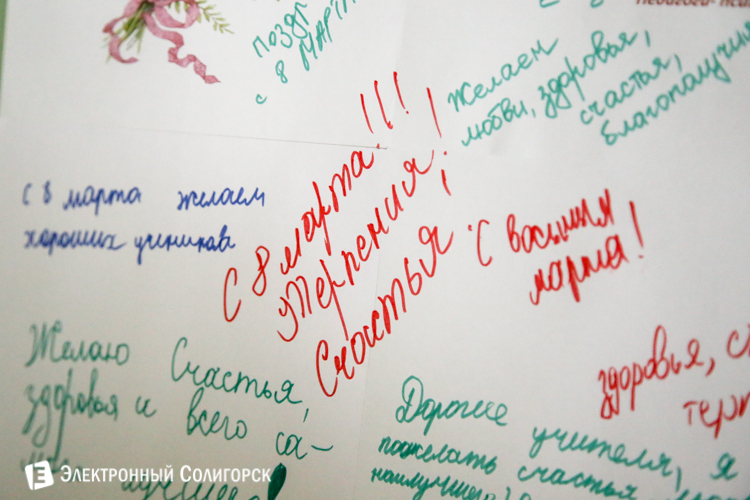 позд
с 8 МАРТА
Желаем
любви, здоровья,
счастья,
благополучия
С 8 марта!!!
Терпения!
Счастья
С восьмым
марта!
с 8 марта желаем
хороших учеников
Желаю Счастья,
здоровья и всего са-
Дорогие учителя, я
пожелать счастья
наилучшего
здоровья, с
терп
Электронный Солигорск